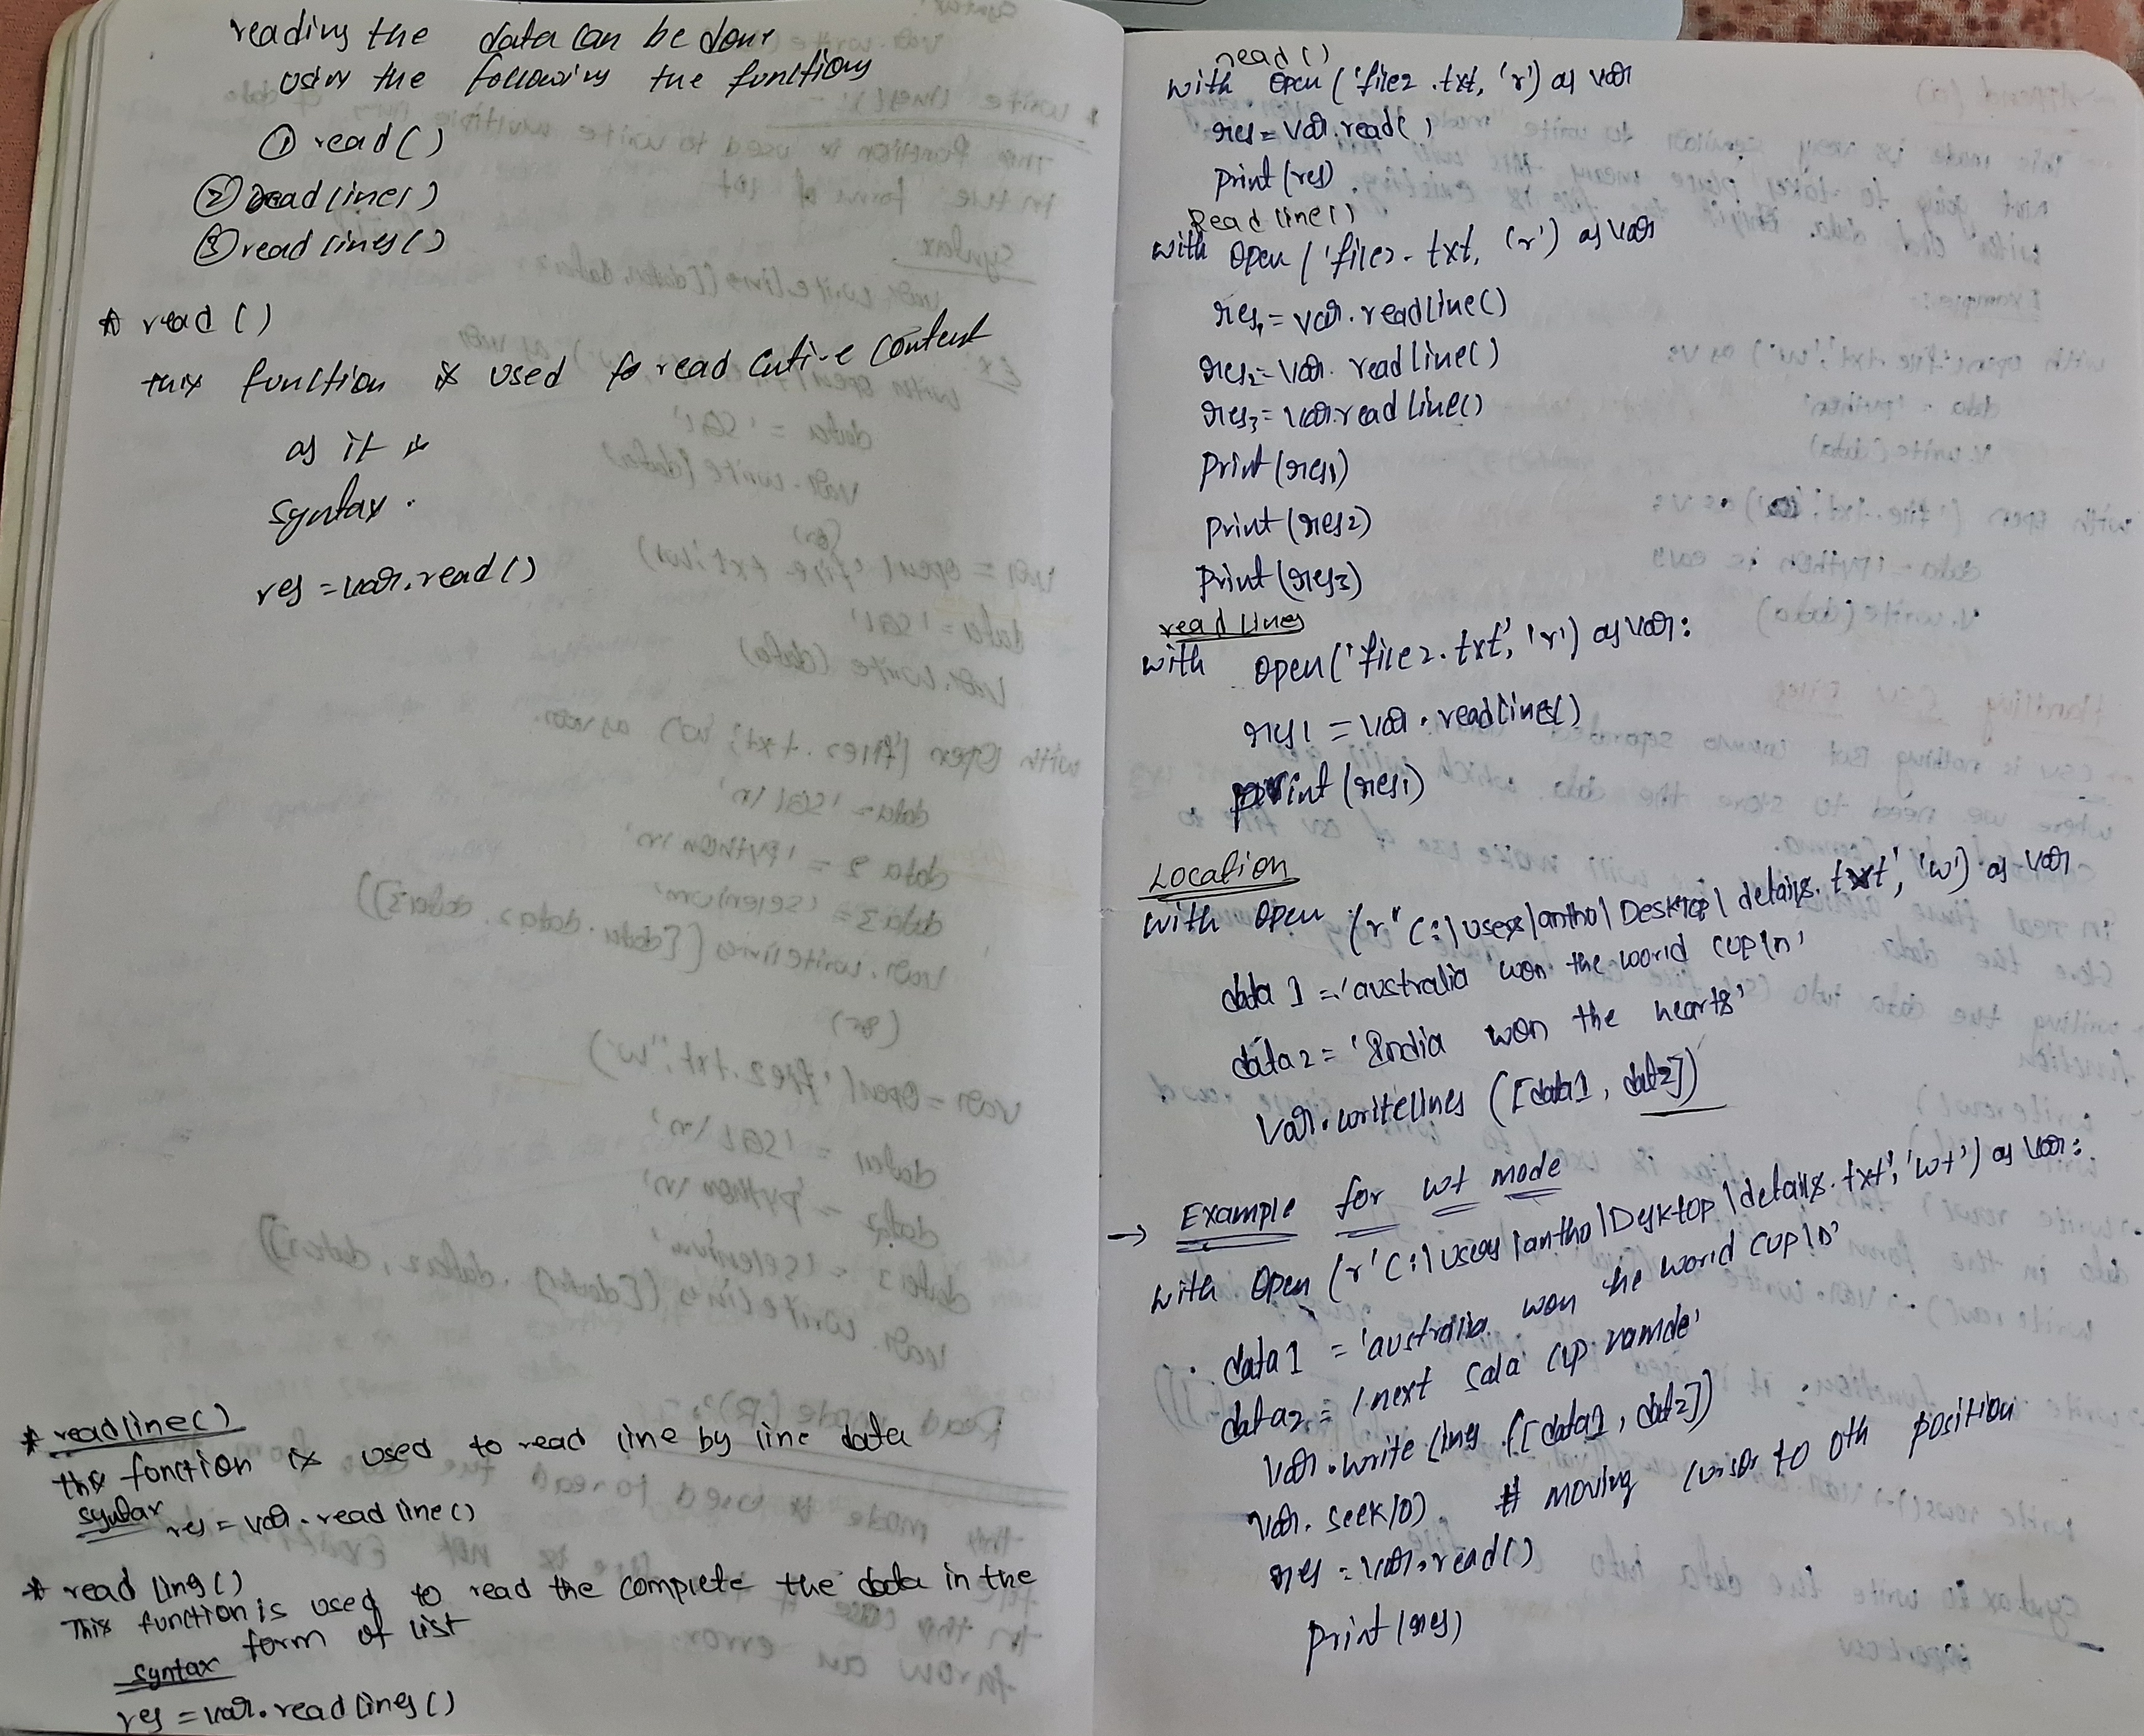 reading the data can be done
using the following the functions
① read()
② readline()
③ readlines()
* read ()
this function is used to read entire content
as it is
syntax.
res = var.read()
* readline()
this function is used to read line by line data
syntax
res = var.readline()
* readlines()
This function is used to read the complete the data in the
form of list
syntax
res = var.readlines()
read()
with open ('file2.txt, 'r') as var
res = var.read()
print (res)
Readline()
with open ('file2.txt, 'r') as var
res1 = var.readline()
res2 = var.readline()
res3 = var.readline()
print (res1)
print (res2)
print (res3)
readlines
with open ('file2.txt', 'r') as var:
res1 = var.readlines()
print (res1)
Location
with open (r"C:\users\antho\Desktop\details.txt', 'w') as var
data1 = 'australia won the world cup\n'
data2 = 'India won the hearts'
var.writelines ([data1, dat2])
→ Example for wt mode
with open (r'C:\users\antho\Desktop\details.txt', 'wt') as var:
data1 = 'australia won the world cup\n'
data2 = 'next sala cup namde'
var.writelines ([data1, dat2])
var.seek(0) # moving cursor to 0th position
res = var.read()
print (res)